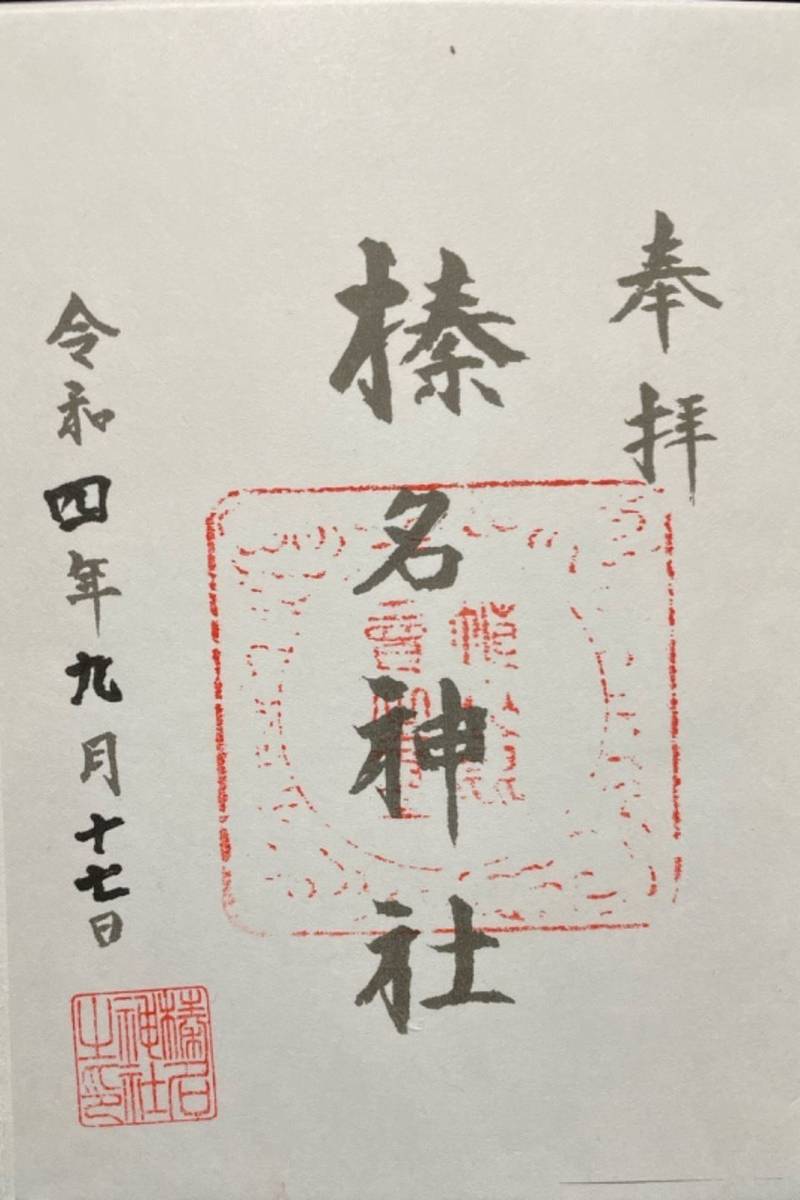 奉拝
榛名神社
令和四年九月十七日
榛名
神社
之印